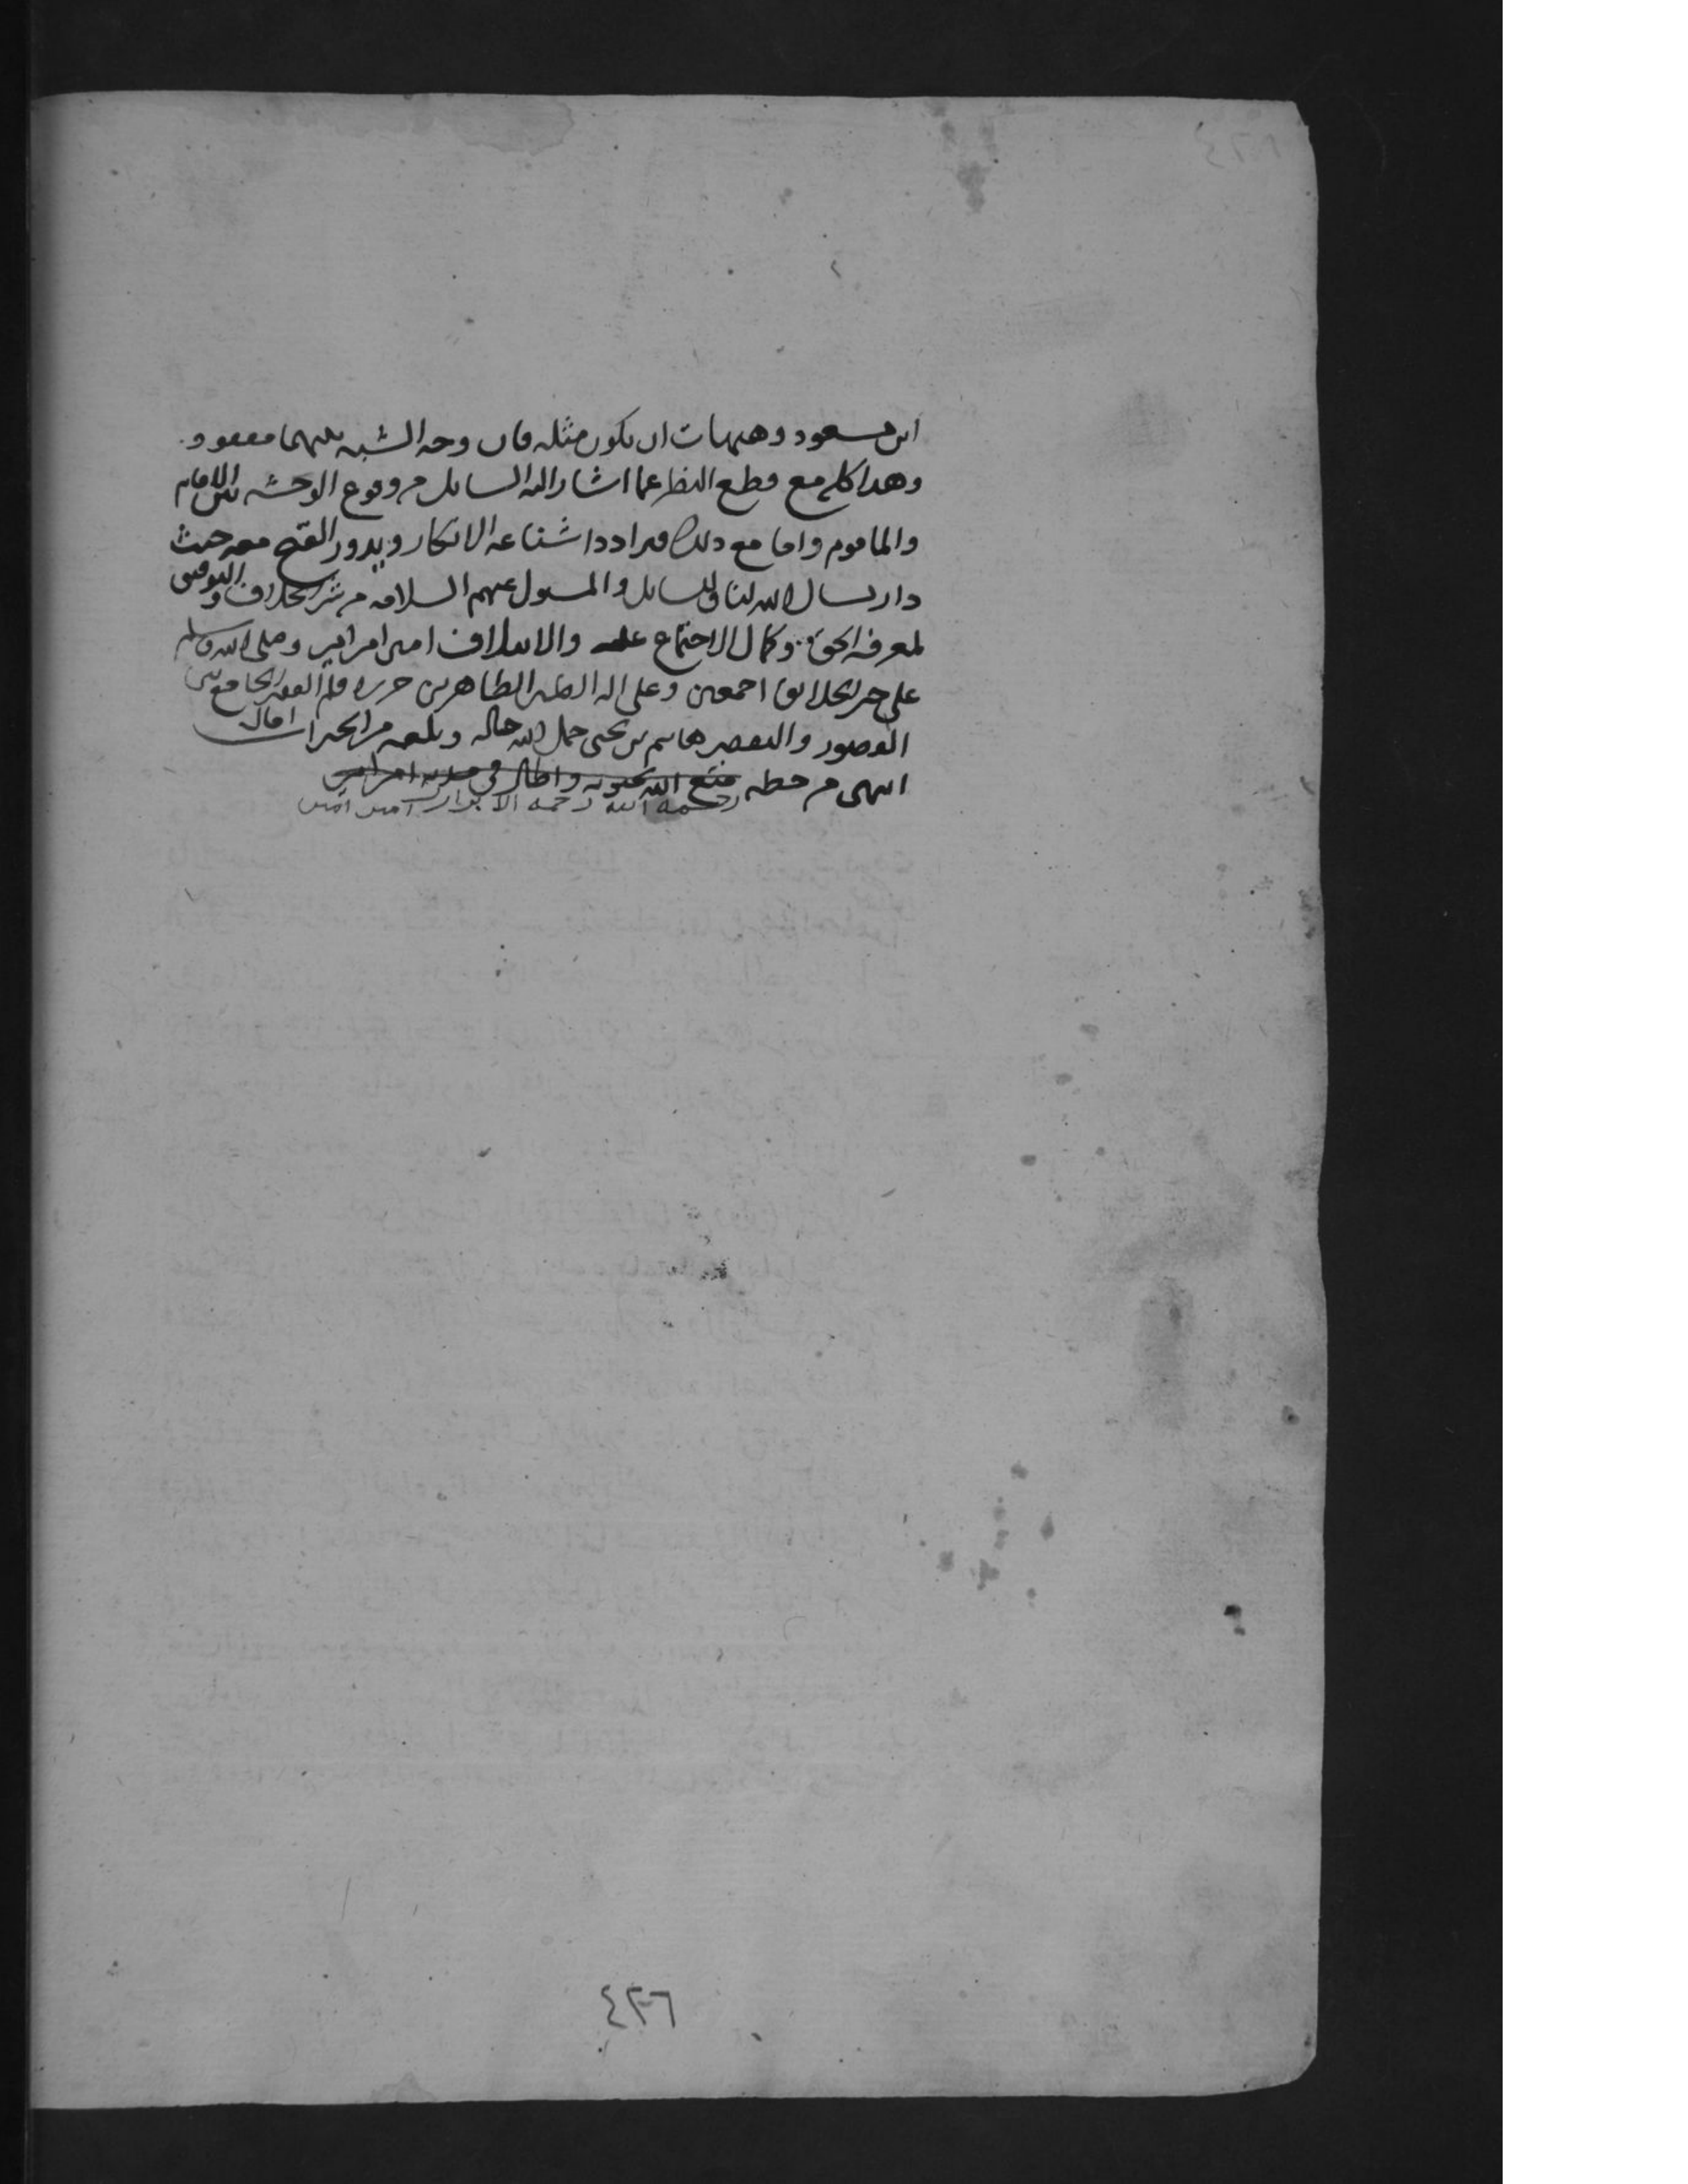 ابن مسعود وهيهات ان يكون مثله فان وجه الشبه بينهما مفقود
وهذا كله مع قطع النظر عما اشار اليه السايل من وقوع الوحشه بين الامام
والماموم واما مع ذلك فيزداد شناعه الانكار ويدور القبح معه حيث
دار نسال الله لنا وللسايل والمسول عنهم السلامه من شر الخلاف والتوفيق
لمعرفه الحق وكمال الاجتماع عليه والايتلاف امين امين امين وصلى الله وسلم
على خير الخلايق اجمعين وعلى اله الطيبين الطاهرين حرره قلم الفقير الجامع بين
القصور والتقصير هاشم بن يحيى جمل الله حاله وبلغه من الخيرات اماله
انتهى من خطه متع الله بحيوته واطال في مدته امين امين
رحمه الله رحمه الابرار امين امين
٤٢٦